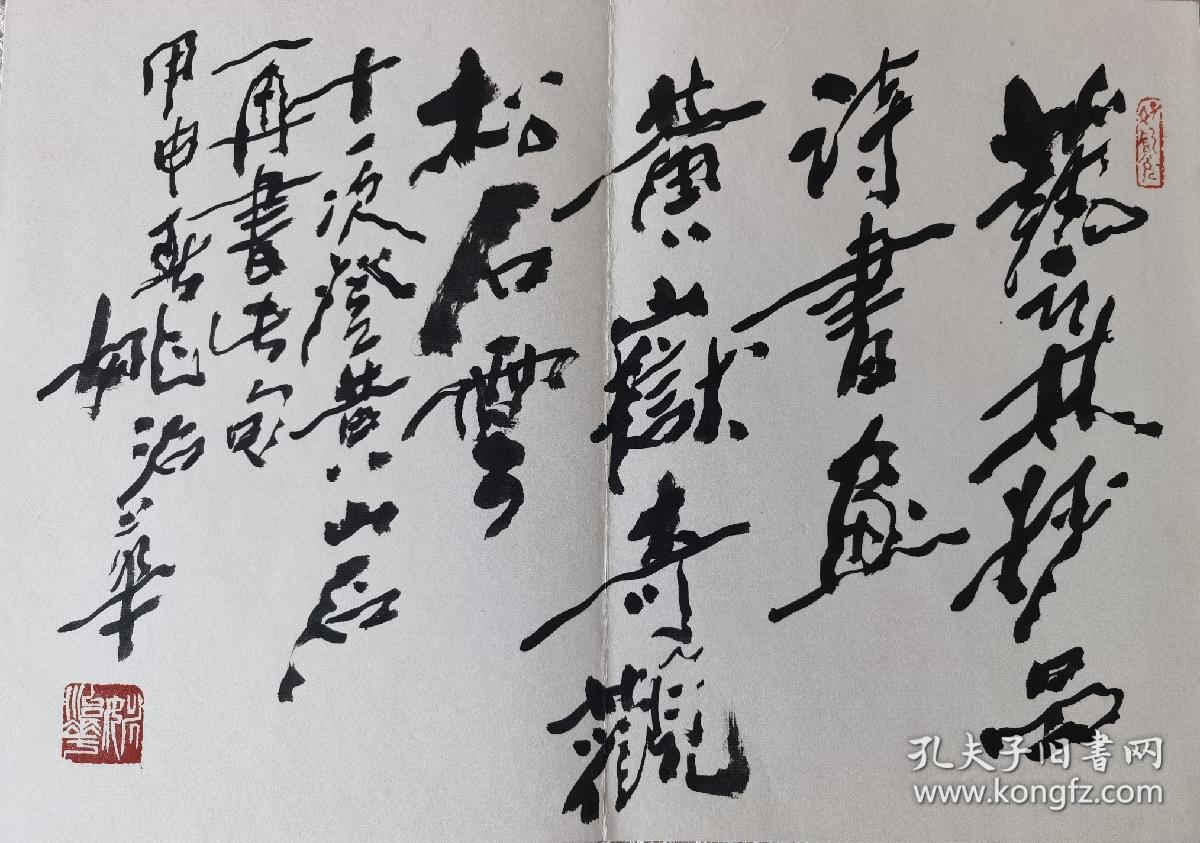 藝林品
詩書畫
黃嶽奇觀
松石雲
十一次登黃山后
再書句
甲申春姚治華
孔夫子旧书网
www.kongfz.com